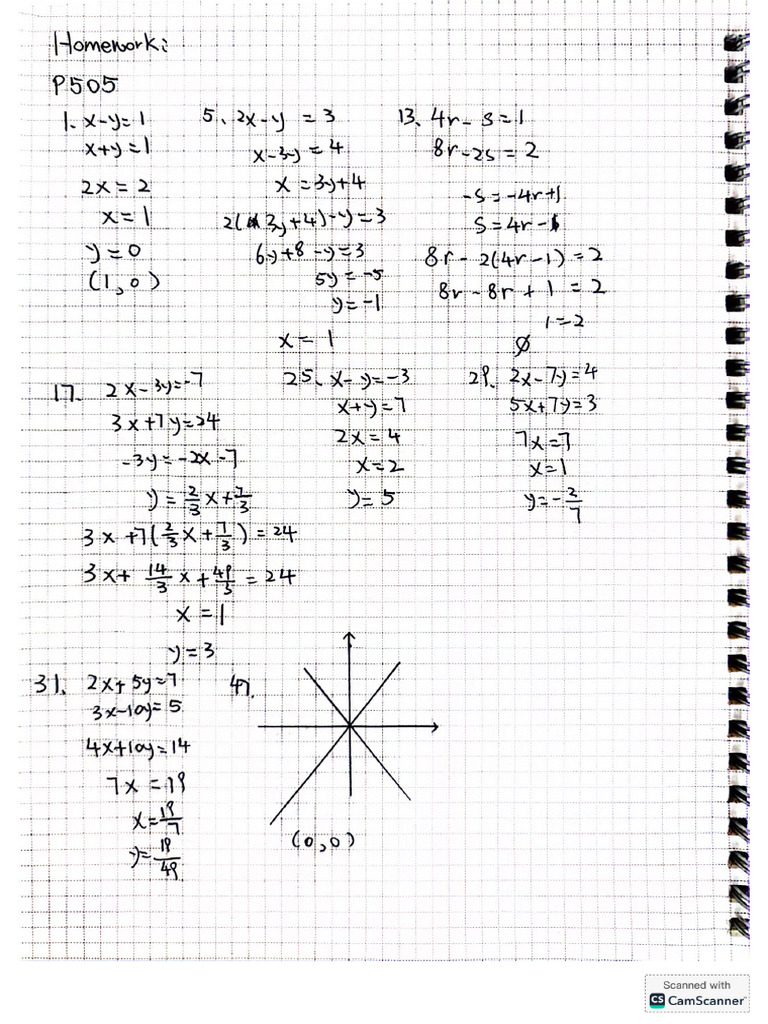 Homework:
P505
1. x-y=1
x+y=1
2x=2
x=1
y=0
(1,0)
5、2x-y=3
x-3y=4
x=3y+4
2(3y+4)-y=3
6y+8-y=3
5y=-5
y=-1
x=1
13、4r-s=1
8r-2s=2
-s=-4r+1
s=4r-1
8r-2(4r-1)=2
8r-8r+1=2
1=2
∅
17. 2x-3y=-7
3x+7y=24
-3y=-2x-7
y=2/3x+7/3
3x+7(2/3x+7/3)=24
3x+14/3x+49/3=24
x=1
y=3
25、x-y=-3
x+y=7
2x=4
x=2
y=5
29. 2x-7y=4
5x+7y=3
7x=7
x=1
y=-2/7
31. 2x+5y=7
3x-10y=5
4x+10y=14
7x=19
x=19/7
y=19/49
47.
(0,0)
Scanned with
CS CamScanner